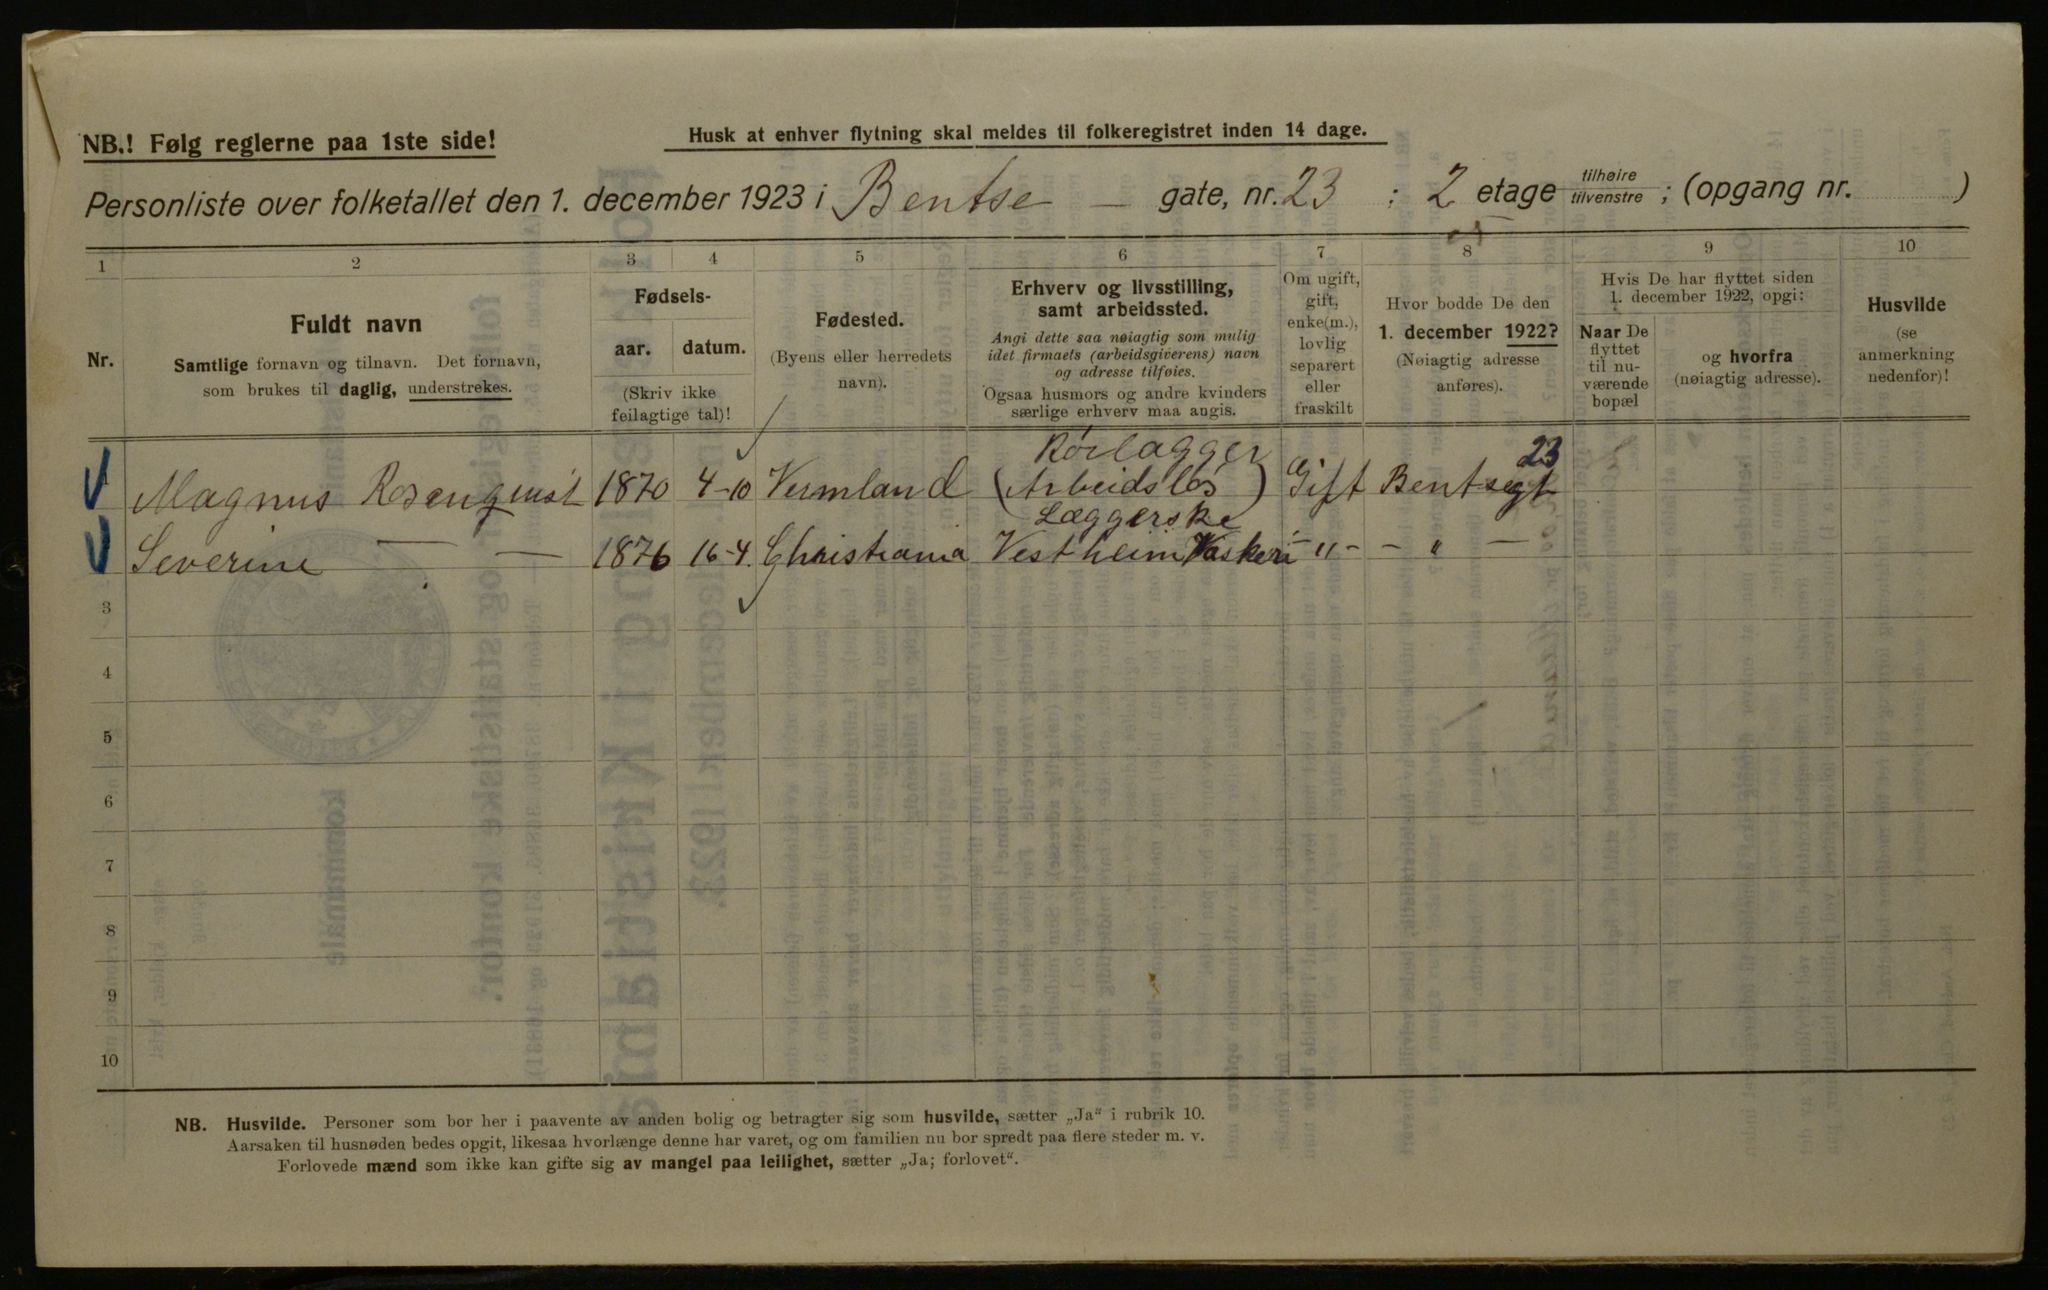 NB.! Følg reglerne paa 1ste side!
Husk at enhver flytning skal meldes til folkeregistret inden 14 dage.
Personliste over folketallet den 1. december 1923 i Bentse — gate, nr. 23 : 2 etage tilhøire tilvenstre ; (opgang nr. )
1 2 3 4 5 6 7 8 9 10
Nr.
Fuldt navn
Samtlige fornavn og tilnavn. Det fornavn,
som brukes til daglig, understrekes.
Fødsels-
aar. datum.
(Skriv ikke
feilagtige tal)!
Fødested.
(Byens eller herredets
navn).
Erhverv og livsstilling,
samt arbeidssted.
Angi dette saa nøiagtig som mulig
idet firmaets (arbeidsgiverens) navn
og adresse tilføies.
Ogsaa husmors og andre kvinders
særlige erhverv maa angis.
Om ugift,
gift,
enke(m.),
lovlig
separert
eller
fraskilt
Hvor bodde De den
1. december 1922?
(Nøiagtig adresse
anføres).
Hvis De har flyttet siden
1. december 1922, opgi:
Naar De
flyttet
til nu-
værende
bopæl
og hvorfra
(nøiagtig adresse).
Husvilde
(se
anmerkning
nedenfor)!
Rørlagger 23
Magnus Rosenquist 1870 4-10 Vermland (Arbeidsløs) Gift Bentsegt
Læggerske
Severine — — 1876 16-4. Christiania Vestheim Vaskeri - " - - " -
3
4
5
6
7
8
9
10
NB. Husvilde. Personer som bor her i paavente av anden bolig og betragter sig som husvilde, sætter „Ja“ i rubrik 10.
Aarsaken til husnøden bedes opgit, likesaa hvorlænge denne har varet, og om familien nu bor spredt paa flere steder m. v.
Forlovede mænd som ikke kan gifte sig av mangel paa leilighet, sætter „Ja; forlovet“.